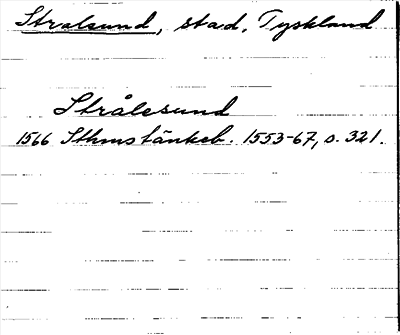 Stralsund, stad, Tyskland
Strålesund
1566 Sthms tänkeb. 1553-67, s. 321.